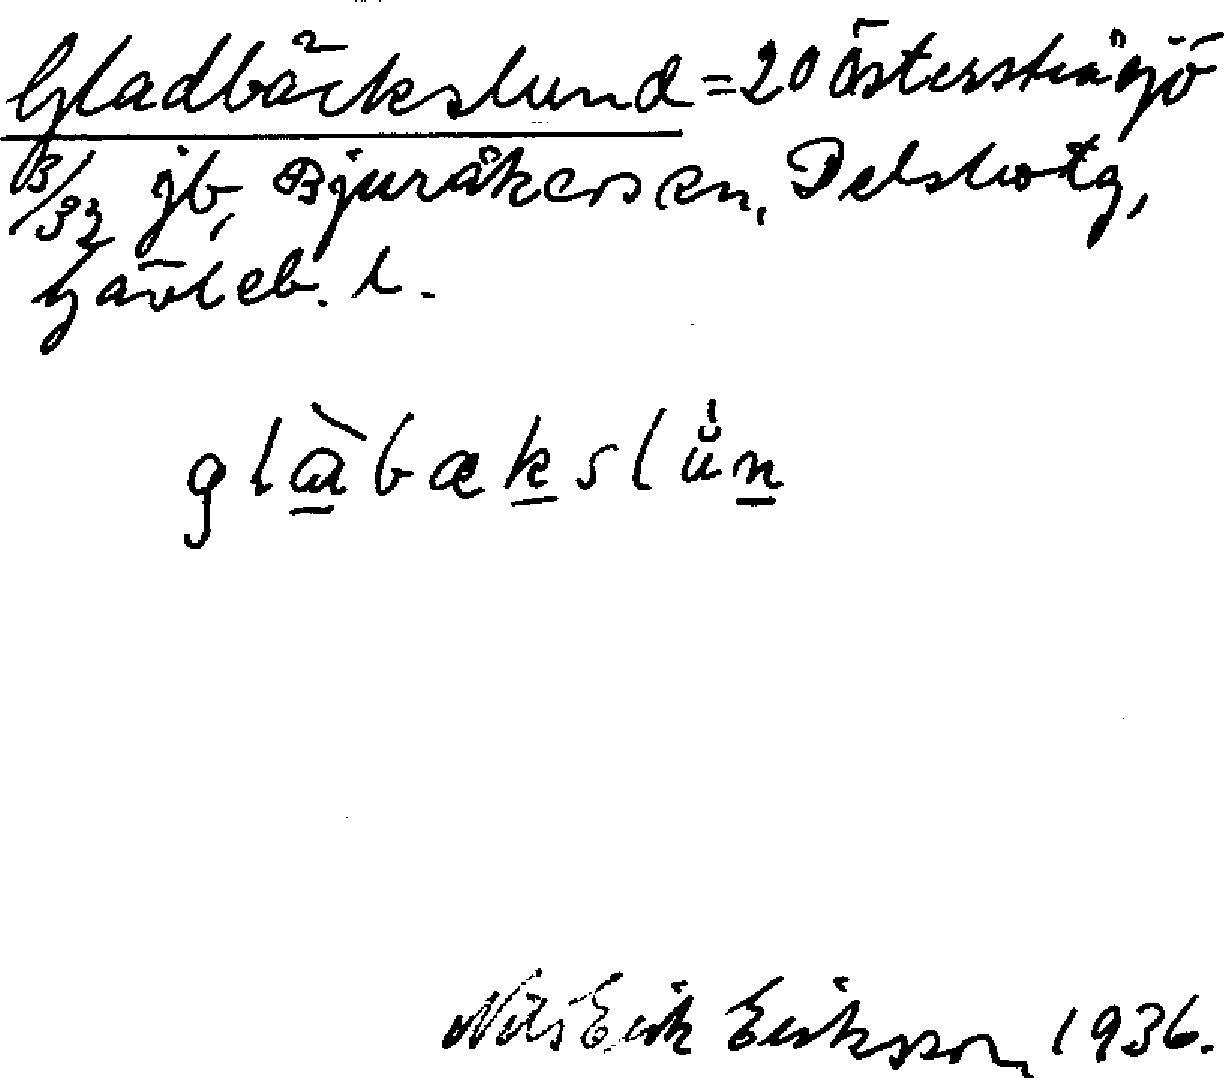 Gladbäckslund = 20 Österstråsjö
3/32 jb, Bjuråkers sn, Delsbotg,
Gävleb. l.
glàbækslŭn
Nils Erik Eriksson 1936.